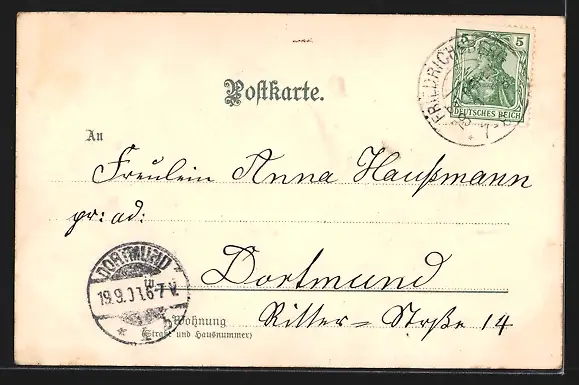 5
DEUTSCHES REICH
Postkarte.
An
Freulein Anna Haußmann
pr: ad:
DORTMUND
19.9.03.6-7 V.
Dortmund
Wohnung
(Straße und Hausnummer)
Ritter=Straße 14